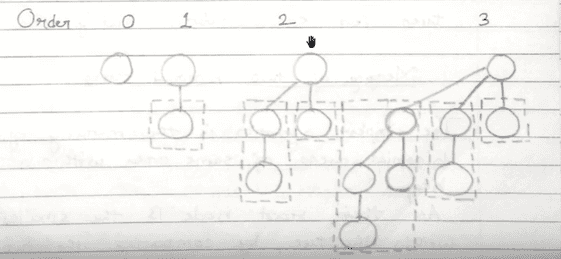 Order 0 1 2 3